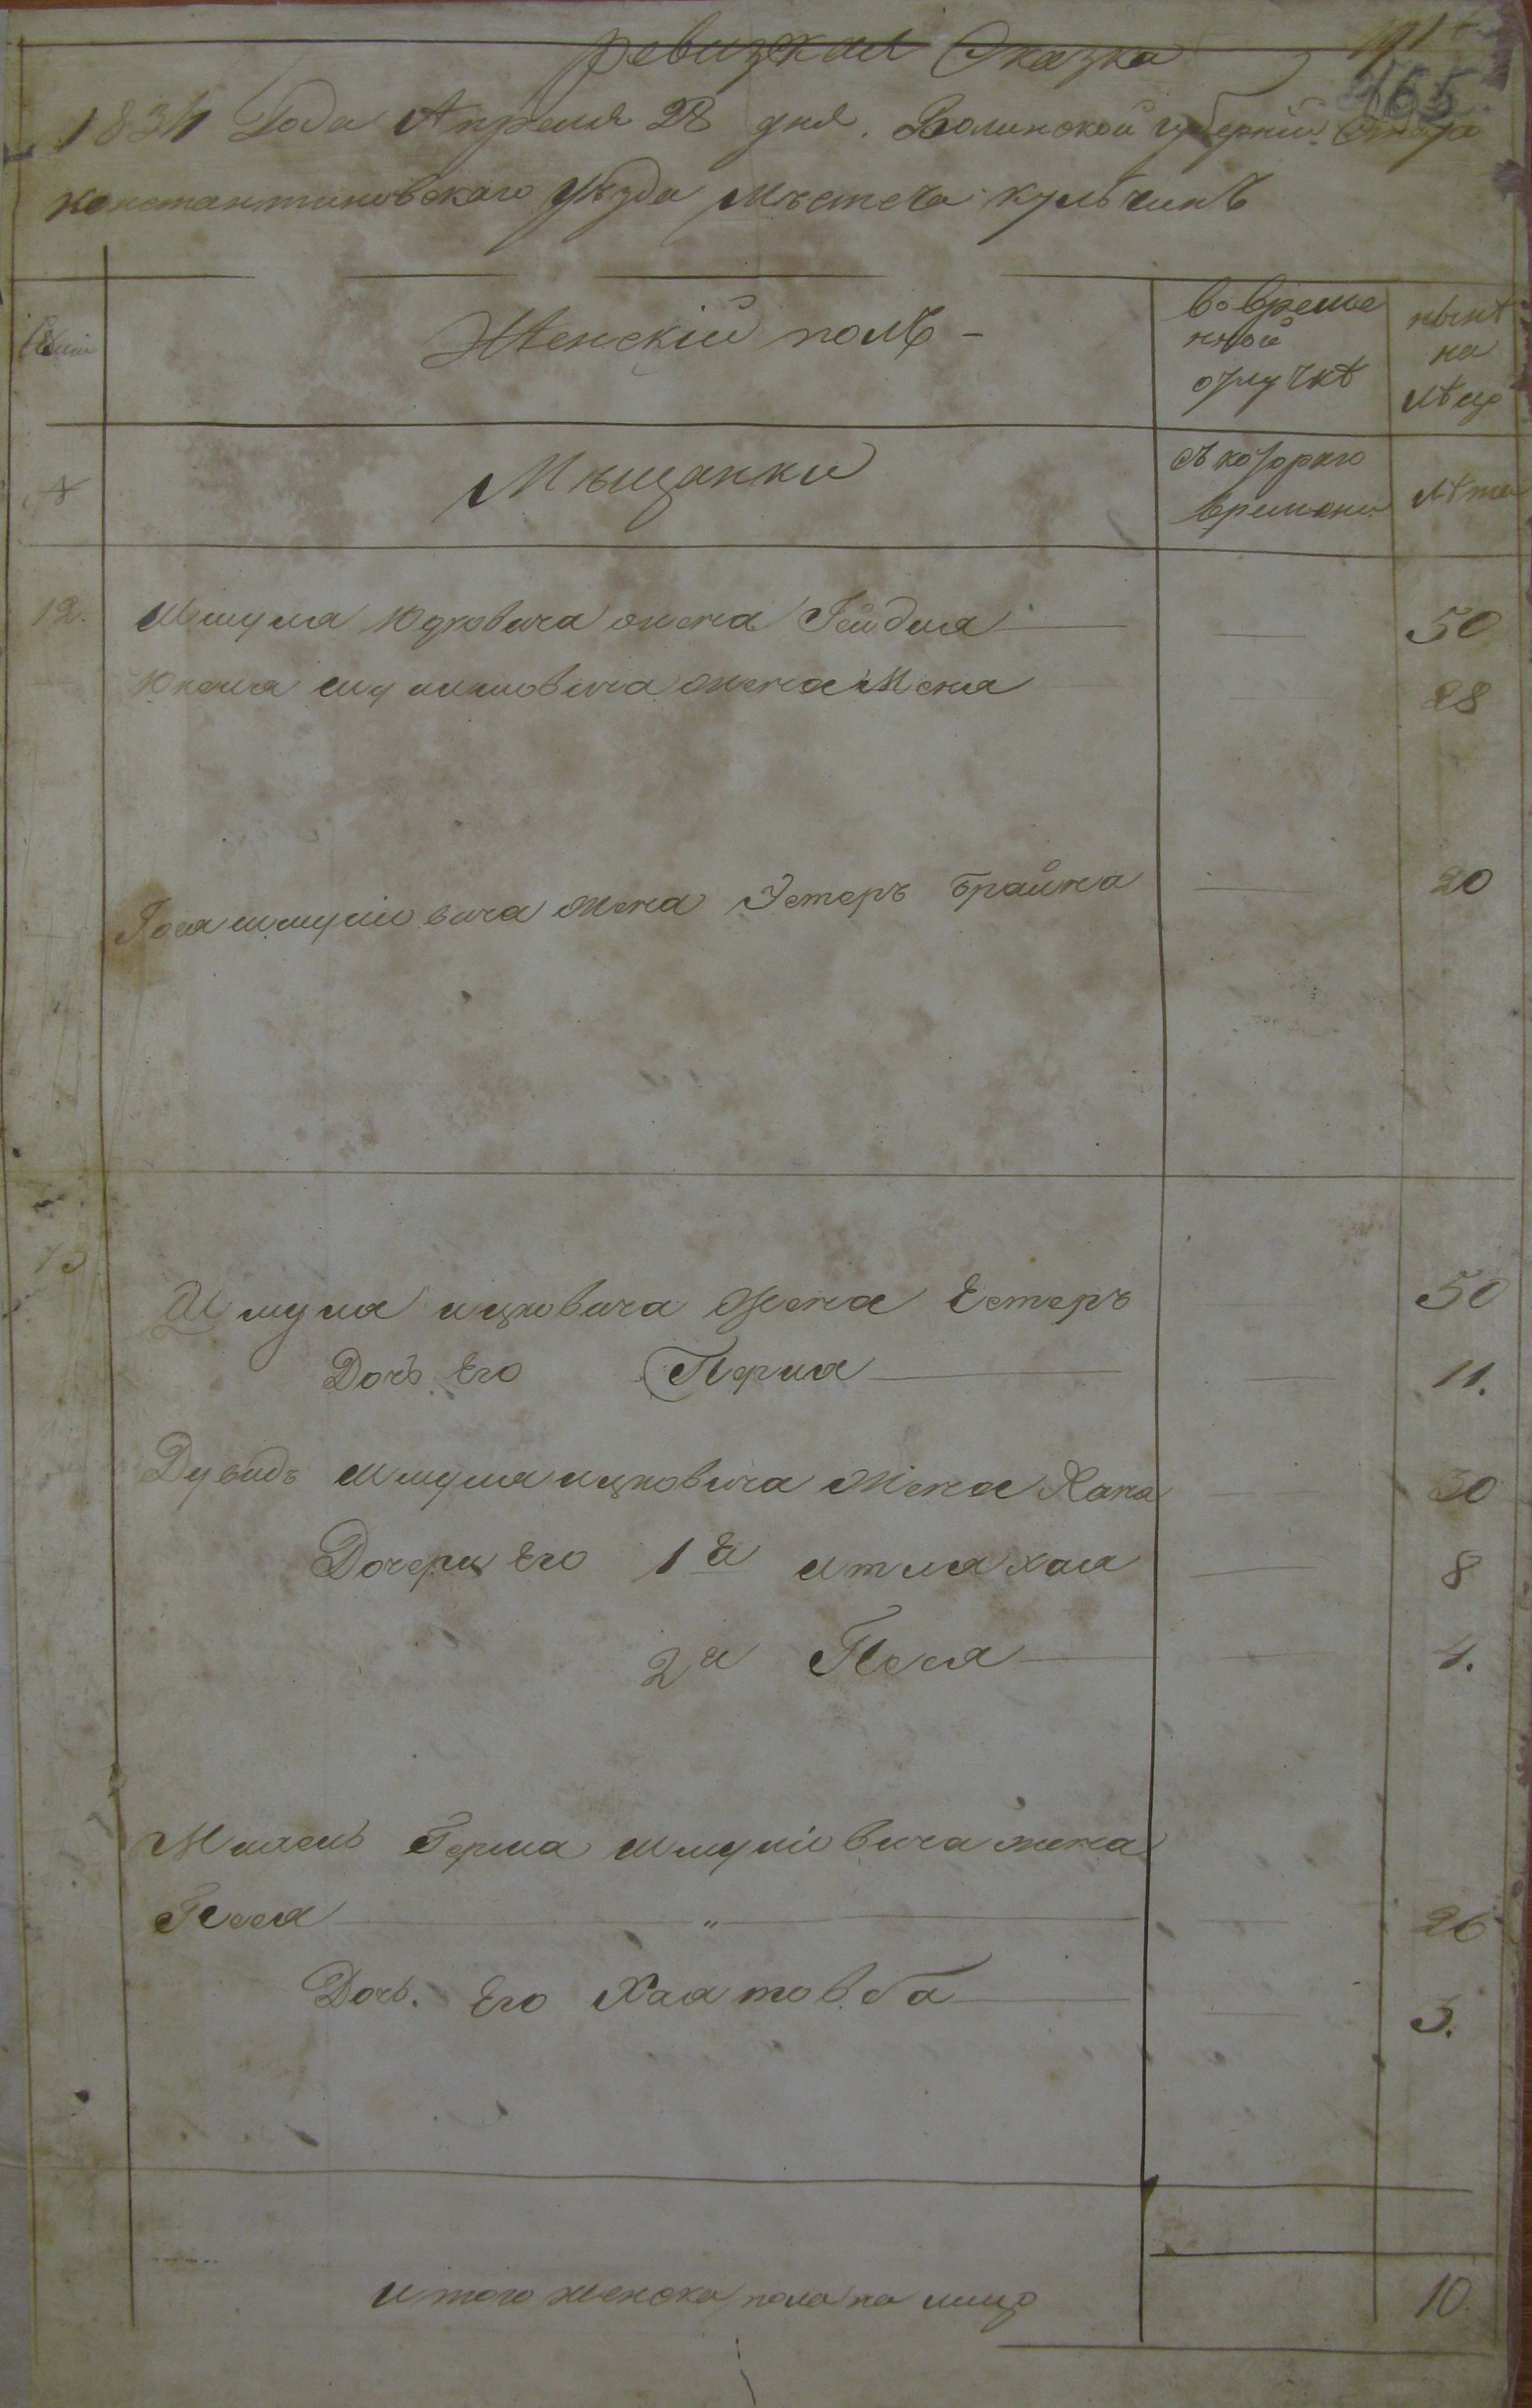 Ревизкая Сказка
465
1834 Года Апреля 28 дня. Волинской губернiи Старо
константиновскаго уѣзда Мѣстеча кульчинъ
Женскiй полъ
во време
нной
отлучкѣ
нынѣ
на
лѣцо
Мѣщанки
съ котораго
времени
лѣта
12. Шмуля Юдковича жена Гейдля 50
жена Меня 28
Шмуліовича жена Эстеръ Брайна 20
13 Шмуля ицковича Жена Естеръ 50
Дочь Его Перля 11.
Дувидъ Шмуля ицковича Жена Хана 30
Дочери Его 1я итля хая 8
2я Песя 4.
Герша Шмуліовича жена
Песя " 26
Дочь. Его Хая товба 3.
Итого женска пола на лицо 10.